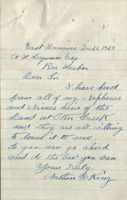 East Dover Dec 22 1923
A H Lyman Esq
Bar Harbor
Dear Sir
I have heard
from all of my Nephews
and Nieces about the
Land at Otter Creek
and they are all willing
to leave it to me
so you can go ahead
and do the best you can
Yours Truly
Nathan G King